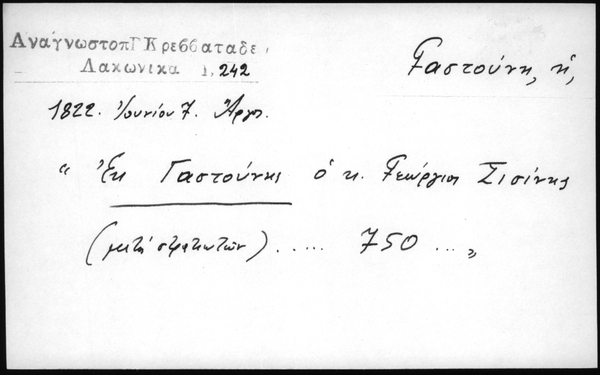 Αναγνωστοπ Γ Κρεββαταδε
Λακωνικα 1, 242
Γαστούνη, ἡ,
1822. Ἰουνίου 7. Ἄργος.
“ Ἐκ Γαστούνης ὁ κ. Γεώργιος Σισίνης
(μετὰ στρατιωτῶν) ..... 750 ... „